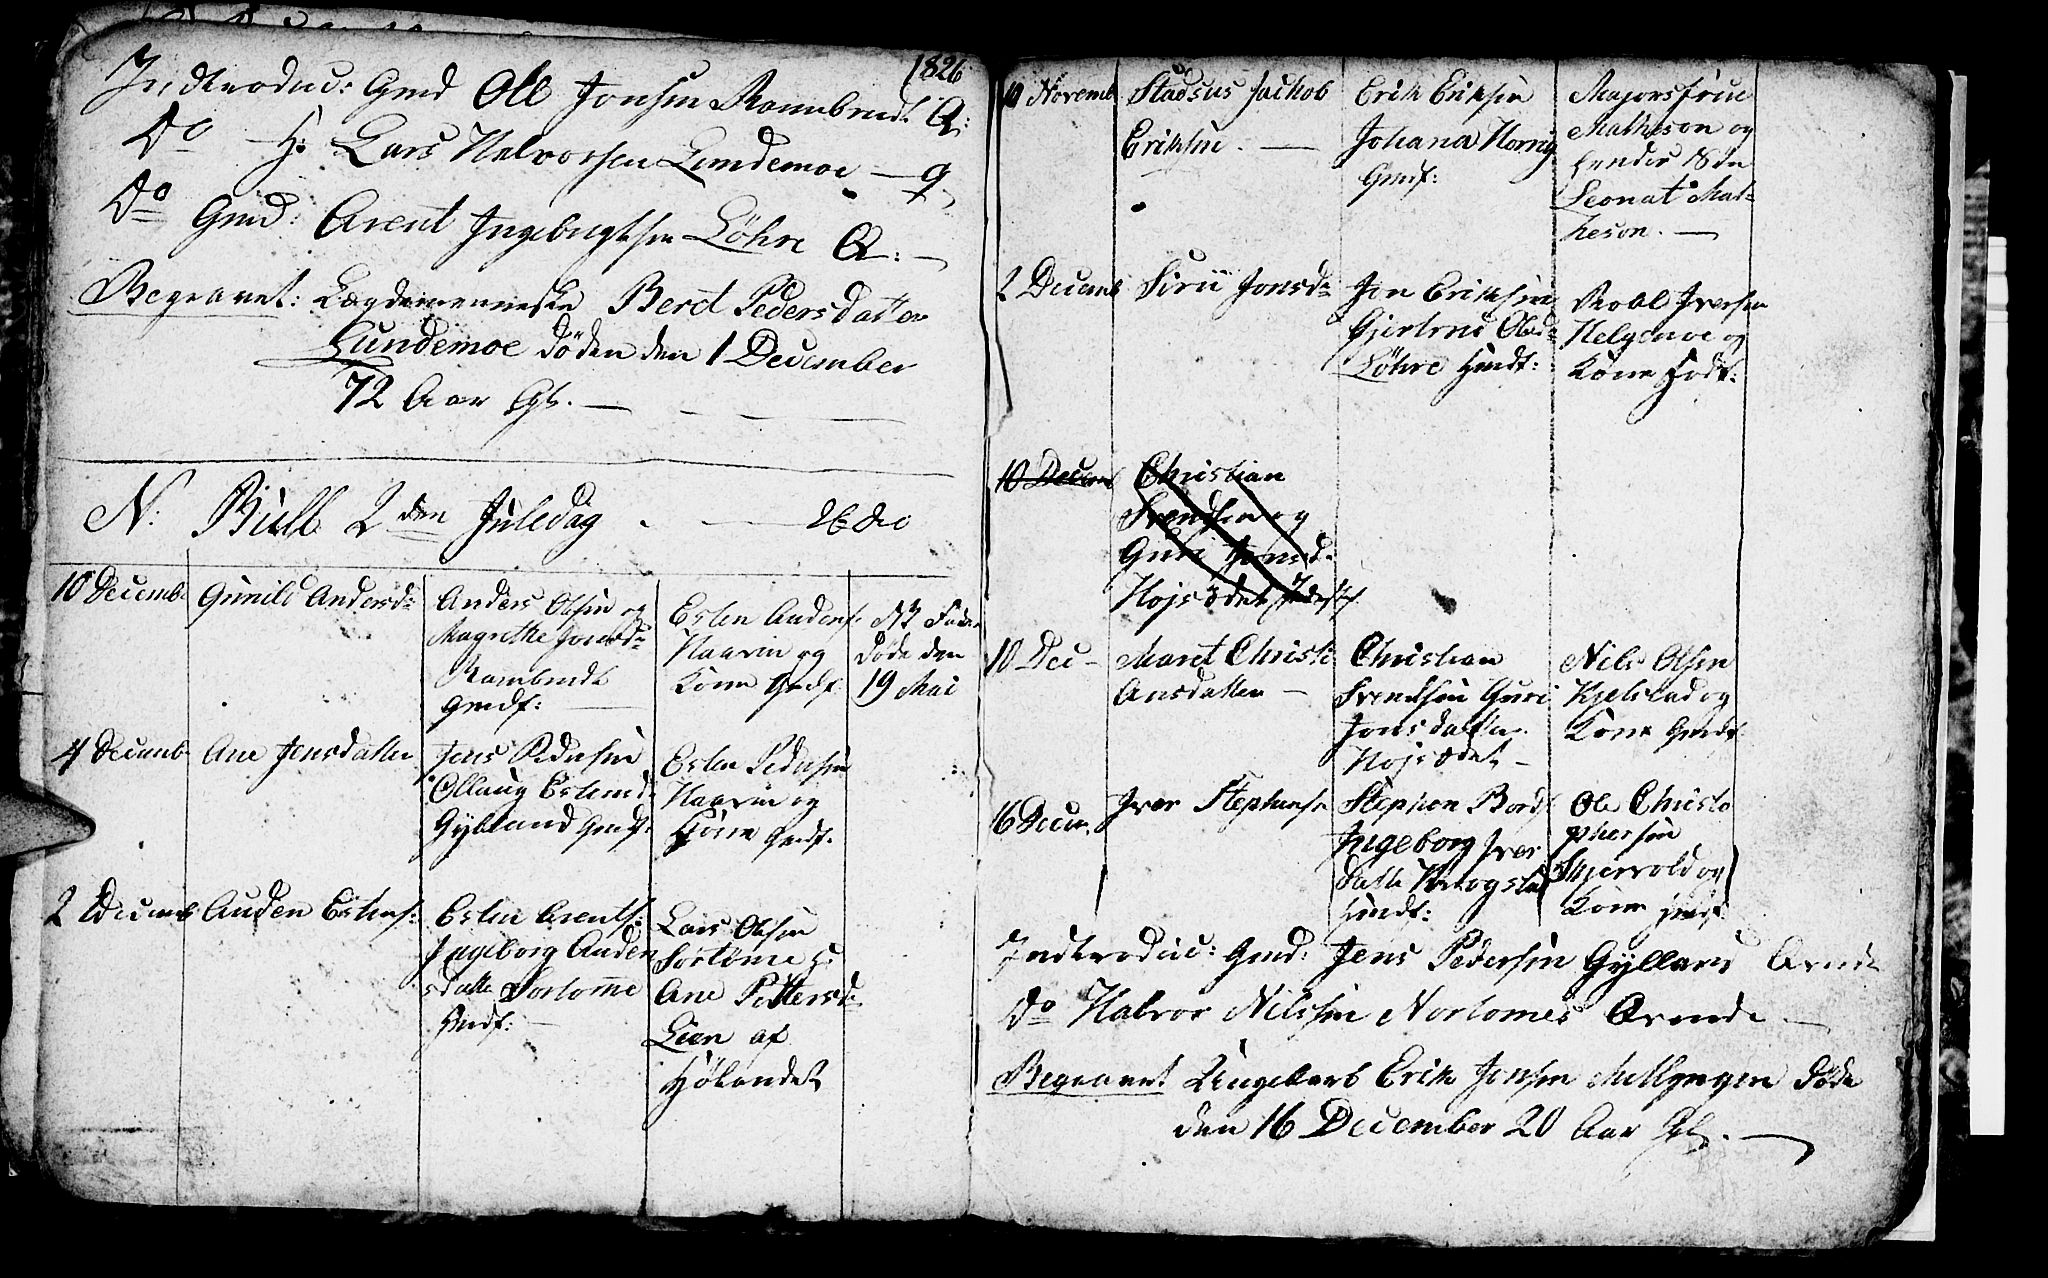 1826
Indtroduc: Gmd Ole Jonsen Rambredt Q:
Do H: Lars Halvorsen Lundemoe — q
Do Gmd: Arent Ingebrigtsen Löhre Q: —
Begravet: Lægdemenneske Beret Pedersdatter
Lundemoe döde den 1 December
72 Aar Gl. —
N: Budl 2den Juledag
10 Decemb
Gunild Andersd:
Anders Olsen og
Magrethe Jonsd:
Rambredt
Gmdf:
Esten Andersf.
Haarin og
Kone Gmdf.
NB Fader
döde den
19 Mai
4 Decemb
Ane Jensdatter
Jens Pedersen
Ollaug Estensd:
Gylland Gmdf:
Esten Pedersen
Haarin og
Kone Gmdf.
2 Decemb
Auden Estensf:
Esten Arentsf:
Ingeborg Auden
sdatte Sortome
Hmdf:
Lars Olsen
Sortome H:
Ane Pettersd:
Lien af
Hölandet
10 Novemb
Stadsus Jackob
Eriksen. —
Erik Eriksen
Johana Hornig
Gmdf:
Majorsfrue
Matheson og
hendes Sön
Leonat Mat=
heson. —
2 Decemb
Sirii Jonsd:
Jon Eriksen
Gjertrud Olsd:
Löhre Hmdf:
Roald Iversen
Helgemoe og
Kone Födt:
10 Decemb
Christian
Svendsen og
Guri Jonsd.
Hojsödet
10 Dec —
Maret Christi
ansdatter —
Christian
Svendsen Guri
Jonsdatter
Hojsödet —
Nils Olsen
Kjelstad og
Kone Gmdf
16 Decem.
Iver Stephensen
Stephen Bordf
Ingeborg Iver
datte Krogstad
Hmdf:
Ole Christo
phersen
Skjervold og
Kone Hmdf
Indtroduc: Gmd: Jens Pedersen Gylland Qvinde
Do Halvor Nilssen Nortomes Qvinde —
Begravet Ungekarl Erik Jonsen döde
den 16 December 20 Aar Gl. —